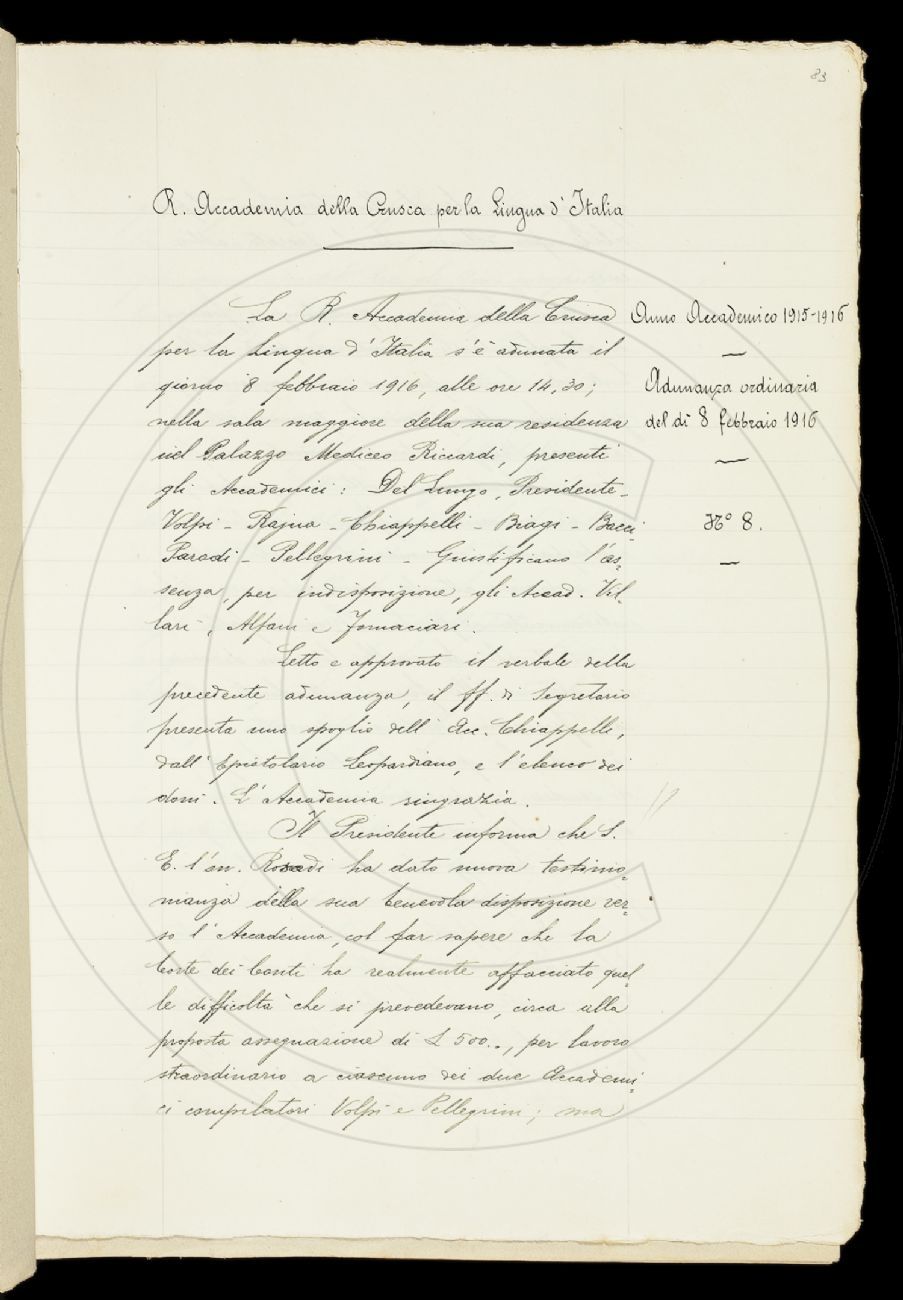 83
R. Accademia della Crusca per la Lingua d'Italia
La R. Accademia della Crusca
per la Lingua d'Italia s'è adunata il
giorno 8 febbraio 1916, alle ore 14,30;
nella sala maggiore della sua residenza
nel Palazzo Mediceo Riccardi, presenti
gli Accademici: Del Lungo, Presidente -
Volpi - Rajna - Chiappelli - Biagi - Bacci -
Parodi - Pellegrini - Giustificano l'as-
senza, per indisposizione, gli Accad. Vil-
lari, Alfani e Fornaciari.
Letto e approvato il verbale della
precedente adunanza, il ff. di Segretario
presenta uno spoglio dell'Acc. Chiappelli,
dall'Epistolario Leopardiano, e l'elenco dei
doni. L'Accademia ringrazia.
Il Presidente informa che S.
E. l'on. Rosadi ha dato nuova testimo-
nianza della sua benevola disposizione ver-
so l'Accademia, col far sapere che la
Corte dei Conti ha realmente affacciato quel-
le difficoltà che si prevedevano, circa alla
proposta assegnazione di L 500.., per lavoro
straordinario a ciascuno dei due Accademi-
ci compilatori Volpi e Pellegrini; ma
Anno Accademico 1915-1916
Adunanza ordinaria
del dì 8 febbraio 1916
N° 8.